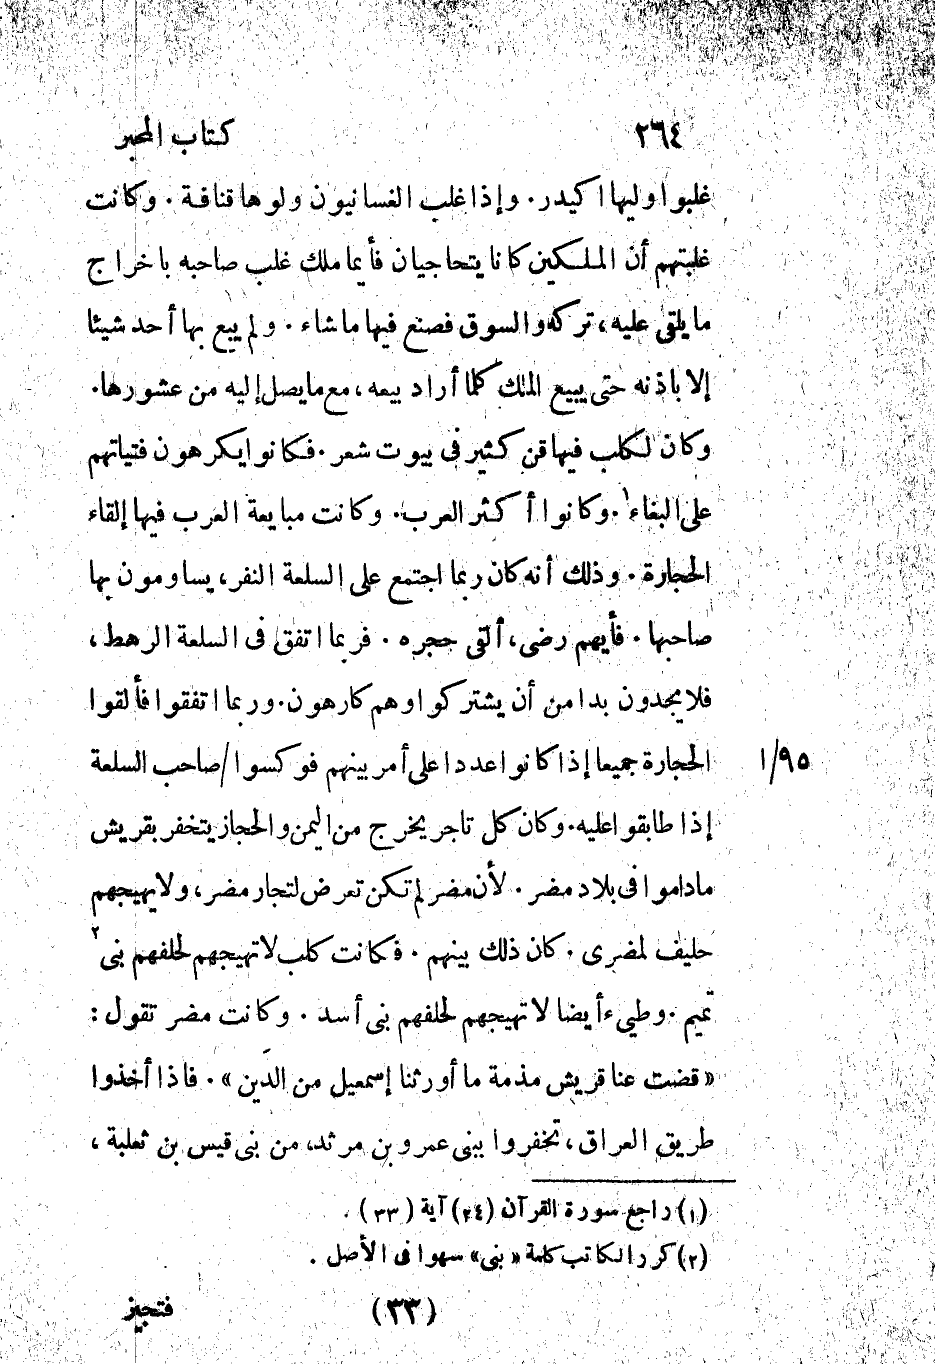 ٢٦٤ كتاب المحبر
غلبوا وليها اكيدر. وإذا غلب الغسانيون ولوها قنافة. وكانت
غلبتهم أن الملكين كانا يتحاجيان فأيما ملك غلب صاحبه باخراج
ما يلقى عليه، تركه والسوق فصنع فيها ماشاء. ولم يبع بها أحد شيئا
إلا باذنه حتى يبيع الملك كلما أراد بيعه، مع مايصل إليه من عشورها.
وكان لكلب فيها قن كثير فى بيوت شعر. فكانوا يكرهون فتياتهم
على البغاء١. وكانوا أكثر العرب. وكانت مبايعة العرب فيها إلقاء
الحجارة. وذلك أنه كان ربما اجتمع على السلعة النفر، يساومون بها
صاحبها. فأيهم رضى، ألقى حجره. فربما اتفق فى السلعة الرهط،
فلا يجدون بدا من أن يشتركوا وهم كارهون. وربما اتفقوا فألقوا
الحجارة جميعا إذا كانوا عددا على أمر بينهم فوكسوا /صاحب السلعة ٩٥/١
إذا طابقوا عليه. وكان كل تاجر يخرج من اليمن والحجاز يتخفر بقريش
ماداموا فى بلاد مضر. لأن مضر لم تكن تعرض لتجار مضر، ولا يهيجهم
حليف لمضرى. كان ذلك بينهم. فكانت كلب لا تهيجهم لحلفهم بنى٢
تميم. وطيء أيضا لا تهيجهم لحلفهم بنى أسد. وكانت مضر تقول:
«قضت عنا قريش مذمة ما أورثنا إسمعيل من الدَين». فاذا أخذوا
طريق العراق، تخفروا ببنى عمرو بن مرثد، من بنى قيس بن ثعلبة،
(١) راجع سورة القرآن (٢٤) آية (٣٣).
(٢) كرر الكاتب كلمة «بنى» سهوا فى الأصل.
(٣٣) فتجيز